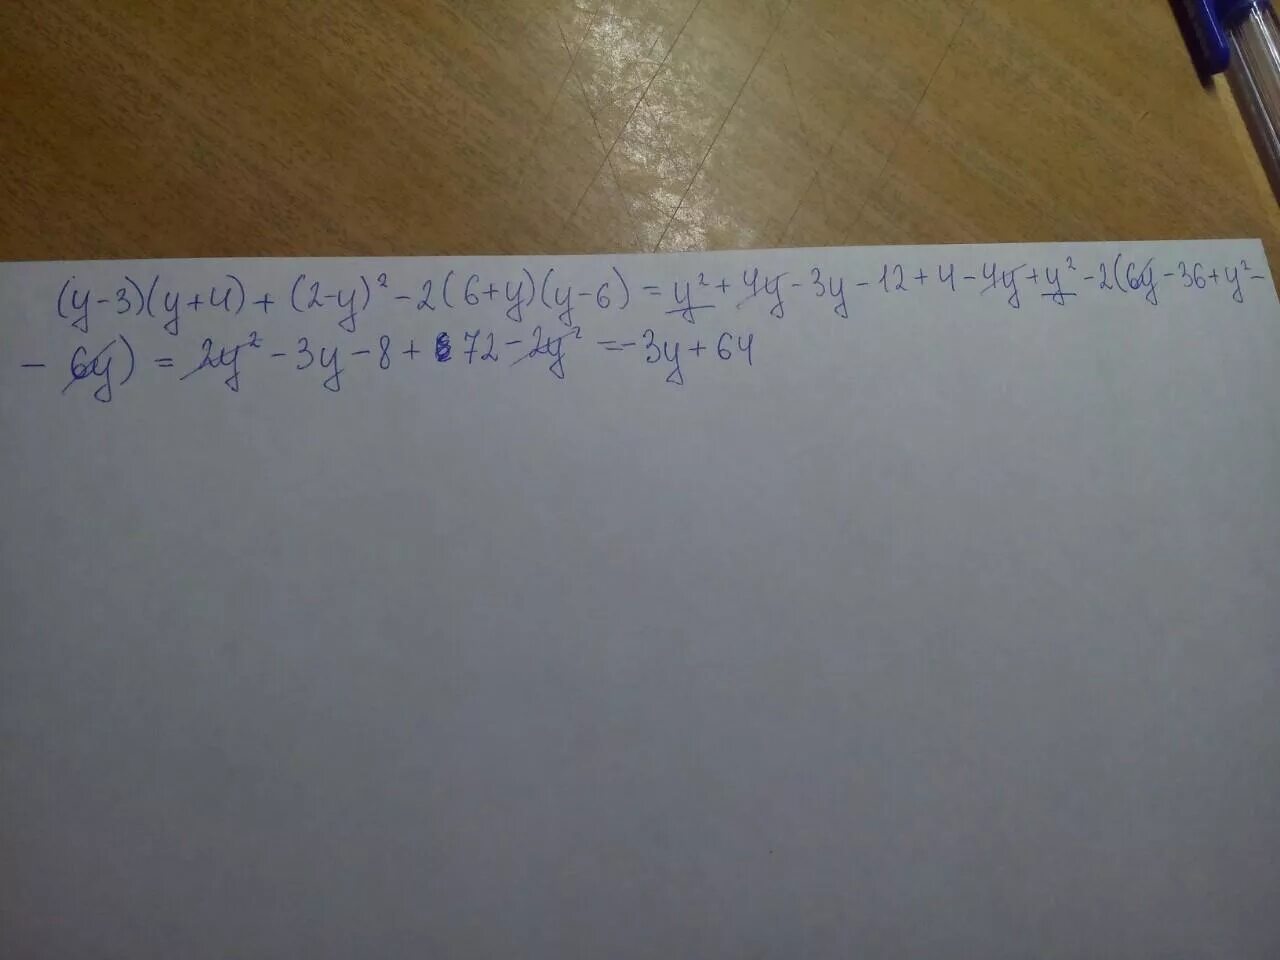 (y-3)(y+4) + (2-y)² - 2(6+y)(y-6) = y² + 4y - 3y - 12 + 4 - 4y + y² - 2(6y - 36 + y² -
- 6y) = 2y² - 3y - 8 + 72 - 2y² = -3y + 64